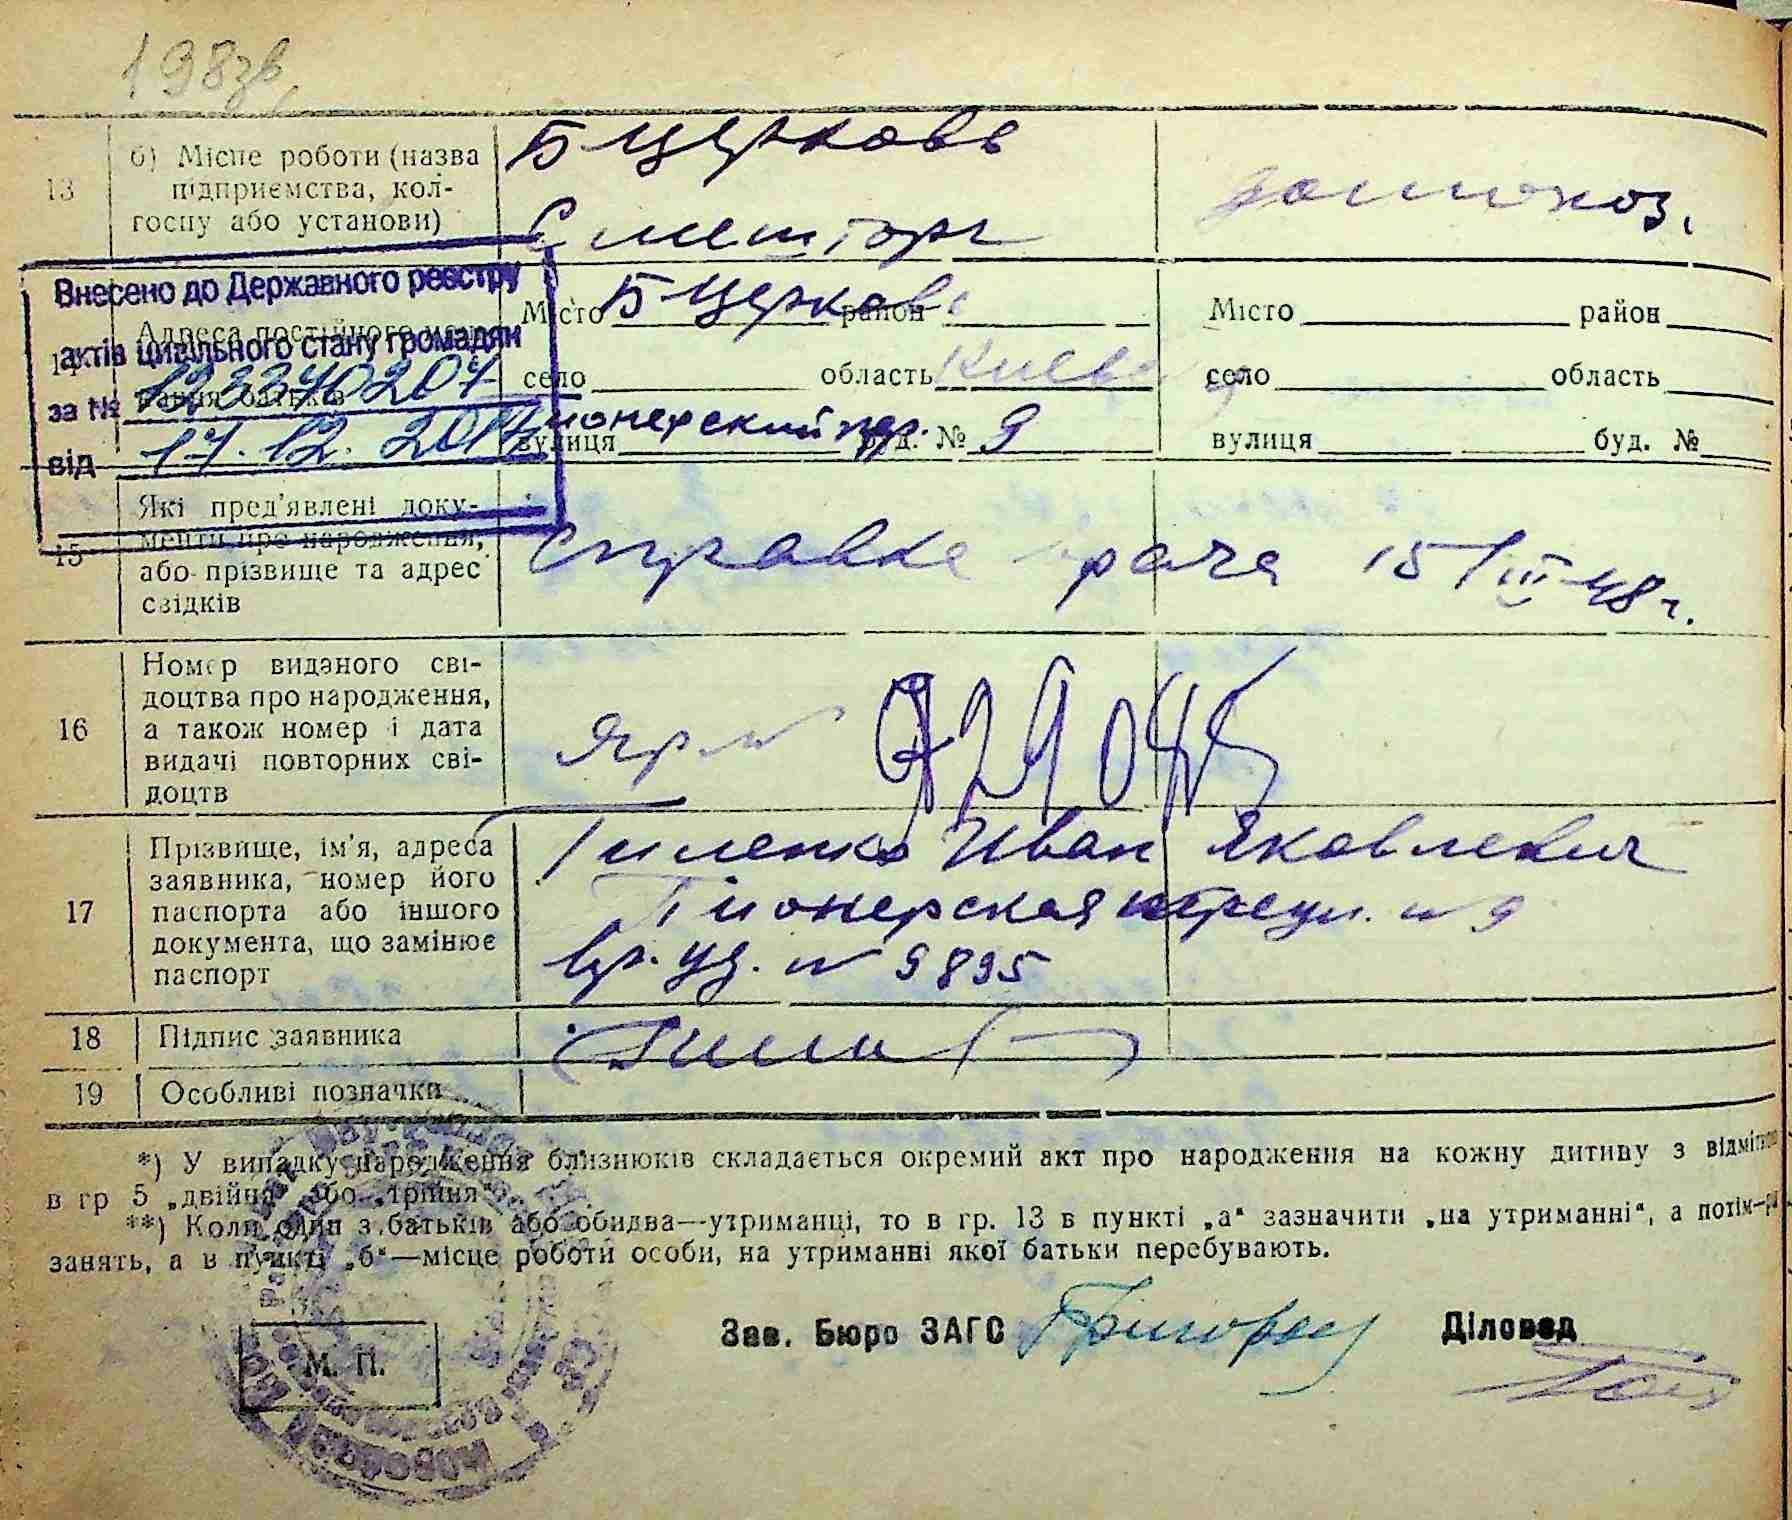 198зв
13
б) Місце роботи (назва
підприємства, кол-
госпу або установи)
Б Церковь
домохоз.
Внесено до Державного реєстру
актів цивільного стану громадян
за №
від 17.12.
Адреса постійного
вання батьків
Місто Б Церковь район
село область Киев
Пионерский пер. 9
вулиця буд. №
Місто район
село область
вулиця буд. №
15
Які пред'явлені доку-
менти про народження,
або прізвище та адрес
свідків
Справка врача 15/III-48 г.
16
Номер виданого сві-
доцтва про народження,
а також номер і дата
видачі повторних сві-
доцтв
17
Прізвище, ім'я, адреса
заявника, номер його
паспорта або іншого
документа, що замінює
паспорт
Иван Яковлевич
Пионерская № 9
вр. уд. № 9895
18
Підпис заявника
19
Особливі позначки
*) У випадку народження близнюків складається окремий акт про народження на кожну дитину з відміткою
в гр 5 „двійна“ або „трійня“.
**) Коли один з батьків або обидва—утриманці, то в гр. 13 в пункті „а“ зазначити „на утриманні“, а потім—рід
занять, а в пункті „б“—місце роботи особи, на утриманні якої батьки перебувають.
Зав. Бюро ЗАГС
Діловод
М. П.